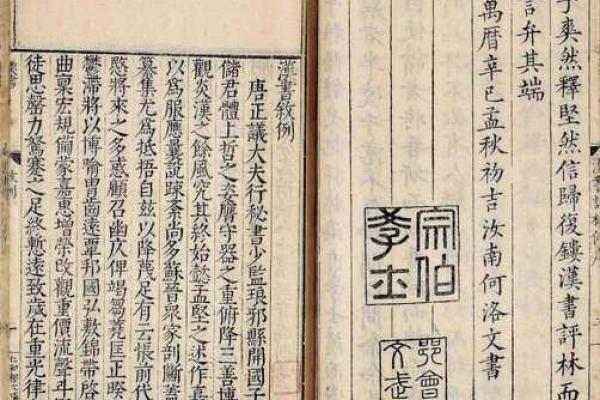 子奭然釋堅然信歸復鏤漢書評林而
言弁其端
萬曆辛巳孟秋初吉汝南何洛文書
宗伯
學士
漢書敘例
唐正議大夫行秘書少監琅邪縣開國子
儲君體上哲之姿膺守器之重俯降三善博
觀炎漢之餘風究其終始懿孟堅之述作嘉
以為服應曩說疎紊尚多蘇晉眾家剖斷蓋
纂集尤為抵捂自茲以降蔑足有云悵前代
愍將來之多惑顧召幽仄俾竭芻蕘匡正睽
鬱滯將以博喻胄齒遠覃邦國弘敷錦帶啓
曲稟宏規備蒙嘉惠增榮改觀重價流聲斗
徒思罄力駑蹇之足終慙遠致歲在重光律